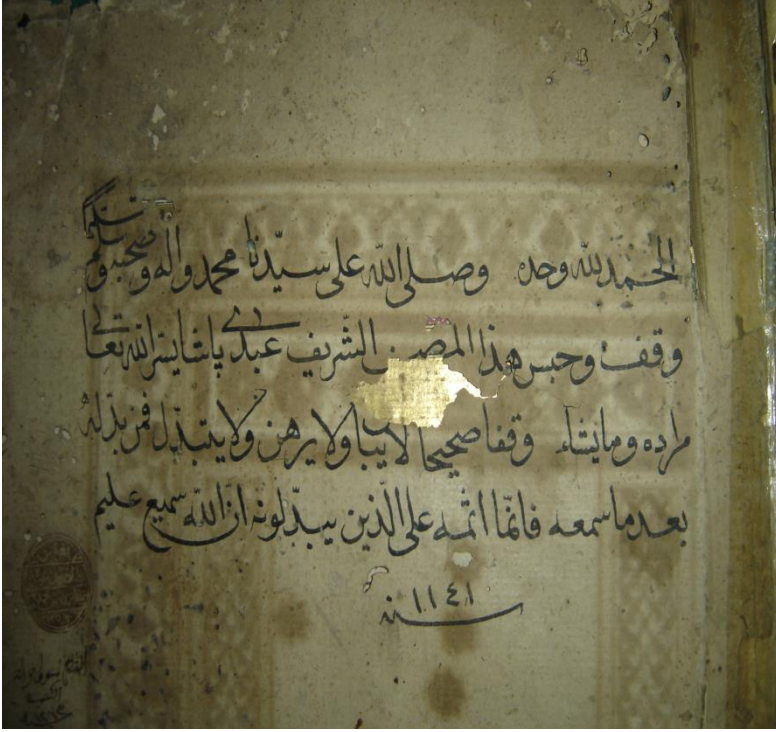 الحمد لله وحده وصلى الله على سيّدنا محمد وآله وصحبه وسلم تسليم
وقف وحبس هذا المصحف الشّريف عبدي پاشا يسّر الله تعالى
مراده وما يشاء وقفا صحيحا لا يباع ولا يرهن ولا يتبدّل فمن بدّله
بعد ما سمعه فانّما اثمه على الّذين يبدّلونه ان الله سميع عليم
سنه ١١٤١